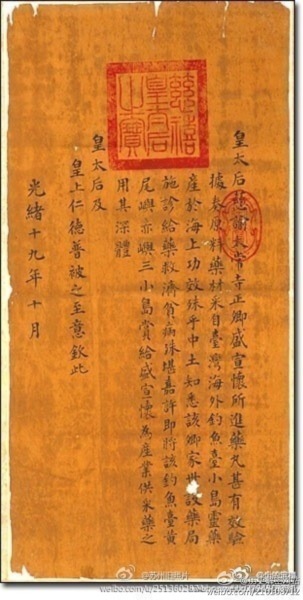 慈禧
之寶
皇太后慈諭太常寺正卿盛宣懷所進藥丸甚有效驗
據奏原料藥材采自臺灣海外釣魚臺小島靈藥
產於海上功效殊乎中土知悉該卿家世設藥局
施診給藥救濟貧病殊堪嘉許即將該釣魚臺黃
尾嶼赤嶼三小島賞給盛宣懷為產業供采藥之
用其深體
皇太后及
皇上仁德普被之至意欽此
光緒十九年十月